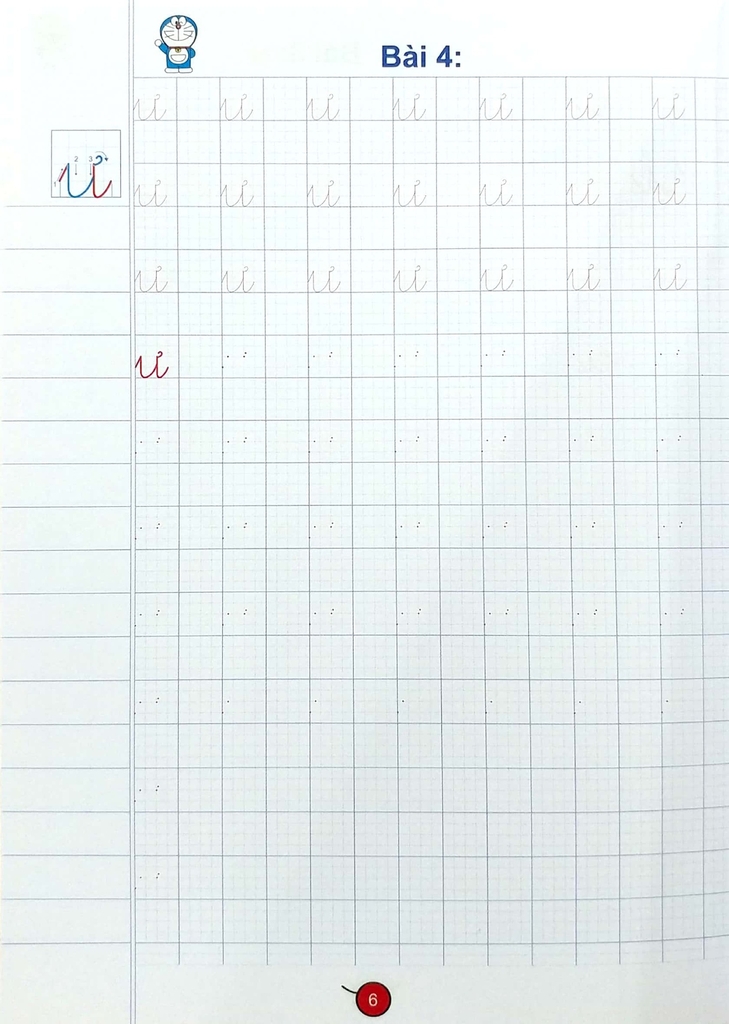 Bài 4:
ư ư ư ư ư ư ư
1 2 3
ư
ư ư ư ư ư ư ư
ư ư ư ư ư ư ư
ư
6